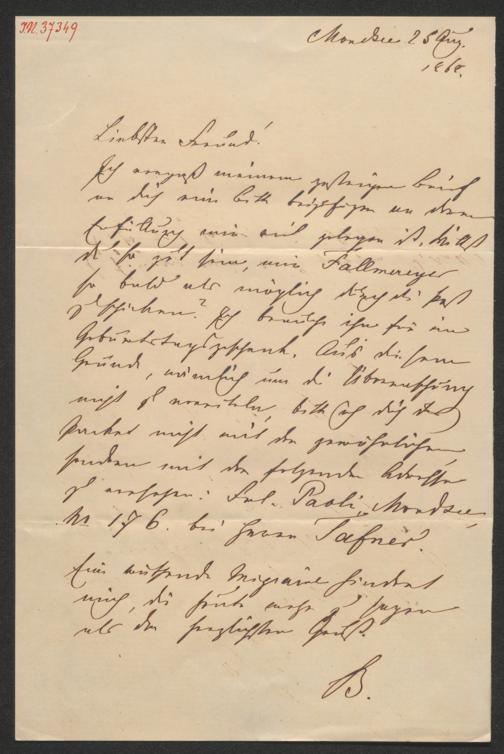 I.N. 37349
Mondsee 25 Aug.
1868.
Liebster Freund!
Ich vergaß meinem gestrigen Brief
an dich eine Bitte beizufügen an deren
Erfüllung mir viel gelegen ist. Willst
du so gut sein, mir Fallmereyer
so bald als möglich durch die Post
zu schicken? Ich brauche ihn für ein
Geburtstagsgeschenk. Aus diesem
Grunde, nämlich um die Überraschung
nicht zu vereiteln, bitte ich dich das
Packet nicht mit der gewöhnlichen,
sondern mit der folgenden Adresse
zu versehen: Frl. Paoli, Mondsee
No 176. bei Herrn Tafner.
Eine wüthende Migraine hindert
mich, dir heute mehr zu sagen
als den herzlichsten Gruß.
B.